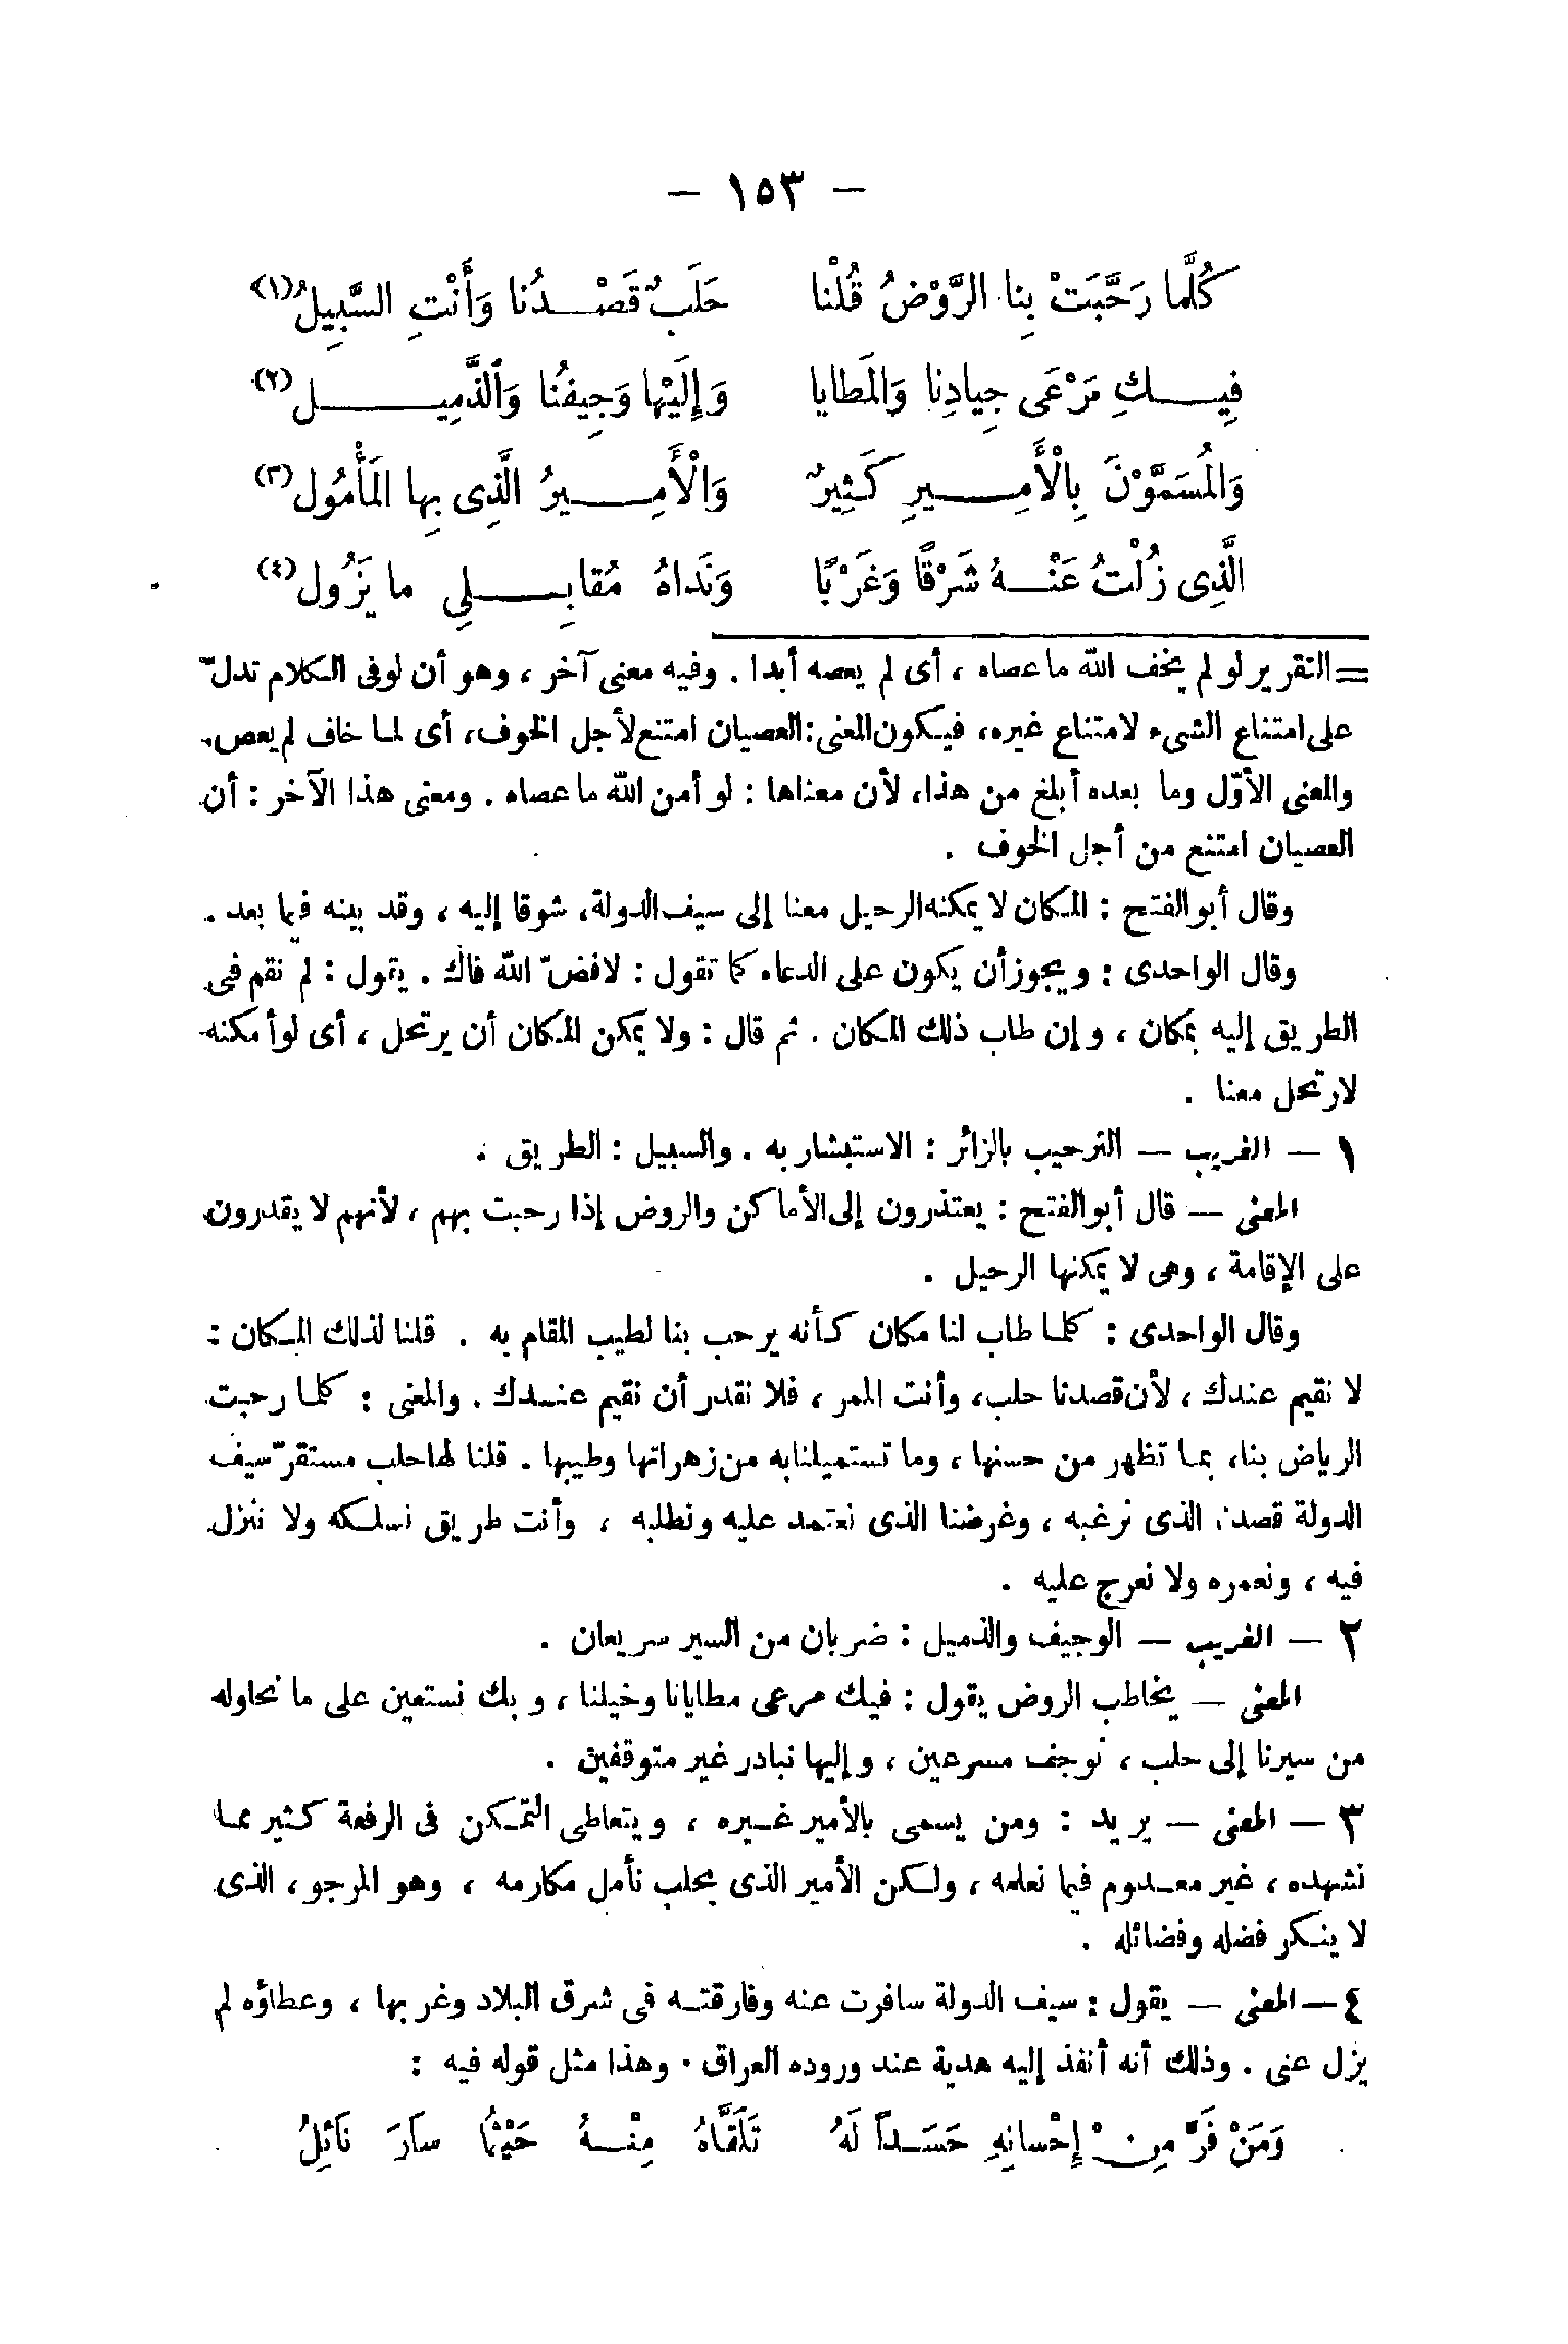 — ١٥٣ —
كُلَّما رَحَّبَتْ بِنا الرَّوْضُ قُلْنا حَلَبٌ قَصْدُنا وَأَنْتِ السَّبِيلُ (١)
فِيكِ مَرْعَى جِيادِنا وَالمَطايا وَإِلَيْها وَجِيفُنا وَالذَّمِيل (٢)
وَالمُسَمَّوْنَ بِالْأَمِيرِ كَثِيرٌ وَالْأَمِيرُ الَّذِى بِها المَأْمُول (٣)
الَّذِى زُلْتُ عَنْهُ شَرْقًا وَغَرْبًا وَنَداهُ مُقابِلِى ما يَزُول (٤)
= التقرير لو لم يخف الله ما عصاه ، أى لم يعصه أبدا . وفيه معنى آخر ، وهو أن لو فى الكلام تدلّ
على امتناع الشىء لامتناع غيره، فيكون المعنى: العصيان امتنع لأجل الخوف، أى لما خاف لم يعص.
والمعنى الأوّل وما بعده أبلغ من هذا، لأن معناها : لو أمن الله ما عصاه . ومعنى هذا الآخر : أن
العصيان امتنع من أجل الخوف .
وقال أبو الفتح : المكان لا يمكنه الرحيل معنا إلى سيف الدولة، شوقا إليه ، وقد بينه فيما بعد .
وقال الواحدى : ويجوز أن يكون على الدعاء كما تقول : لا فضّ الله فاك . يقول : لم نقم فى
الطريق إليه بمكان ، وإن طاب ذلك المكان . ثم قال : ولا يمكن المكان أن يرتحل ، أى لو أمكنه
لارتحل معنا .
١ — الغريب — الترحيب بالزائر : الاستبشار به . والسبيل : الطريق .
المعنى — قال أبو الفتح : يعتذرون إلى الأماكن والروض إذا رحبت بهم ، لأنهم لا يقدرون
على الإقامة ، وهى لا يمكنها الرحيل .
وقال الواحدى : كلما طاب لنا مكان كأنه يرحب بنا لطيب المقام به . قلنا لذلك المكان :
لا نقيم عندك ، لأن قصدنا حلب، وأنت الممر ، فلا نقدر أن نقيم عندك . والمعنى : كلما رحبت
الرياض بنا، بما تظهر من حسنها ، وما تستميلنا به من زهراتها وطيبها . قلنا لها حلب مستقرّ سيف
الدولة قصدنا الذى نرغبه ، وغرضنا الذى نعتمد عليه ونطلبه ، وأنت طريق نسلكه ولا ننزل
فيه ، ونعمره ولا نعرج عليه .
٢ — الغريب — الوجيف والذميل : ضربان من السير سريعان .
المعنى — يخاطب الروض يقول : فيك مرعى مطايانا وخيلنا ، وبك نستعين على ما نحاوله
من سيرنا إلى حلب ، نوجف مسرعين ، وإليها نبادر غير متوقفين .
٣ — المعنى — يريد : ومن يسمى بالأمير غيره ، ويتعاطى التمكن فى الرفعة كثير مما
نشهده ، غير معدوم فيما نعلمه ، ولكن الأمير الذى بحلب نأمل مكارمه ، وهو المرجو ، الذى
لا ينكر فضله وفضائله .
٤ — المعنى — يقول : سيف الدولة سافرت عنه وفارقته فى شرق البلاد وغربها ، وعطاؤه لم
يزل عنى . وذلك أنه أنفذ إليه هدية عند وروده العراق . وهذا مثل قوله فيه :
وَمَنْ فَرَّ مِنْ إِحْسانِهِ حَسَداً لَهُ تَلَقَّاهُ مِنْهُ حَيْثُما سارَ نَائِلُ